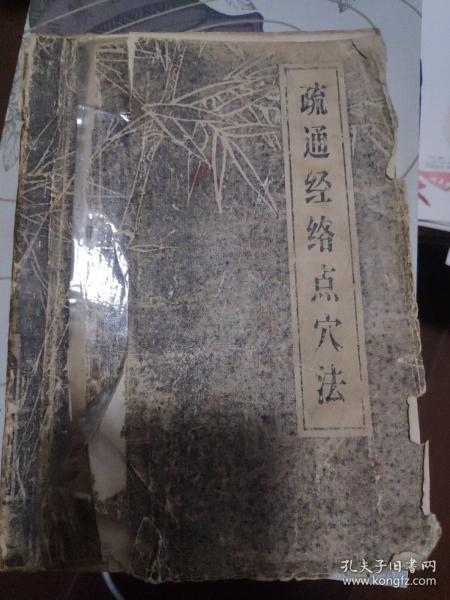 疏通经络点穴法
孔夫子旧书网
www.kongfz.com